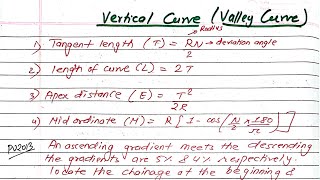 Vertical Curve (Valley Curve)
Radius
1) Tangent length (T) = RN/2 → deviation angle
2) length of curve (L) = 2T
3) Apex distance (E) = T²/2R
4) Mid ordinate (M) = R[1 - cos(N/2 × 180/π)]
PU2013 An ascending gradient meets the descending
the gradients are 5% & 4% respectively.
locate the chainage of the beginning &